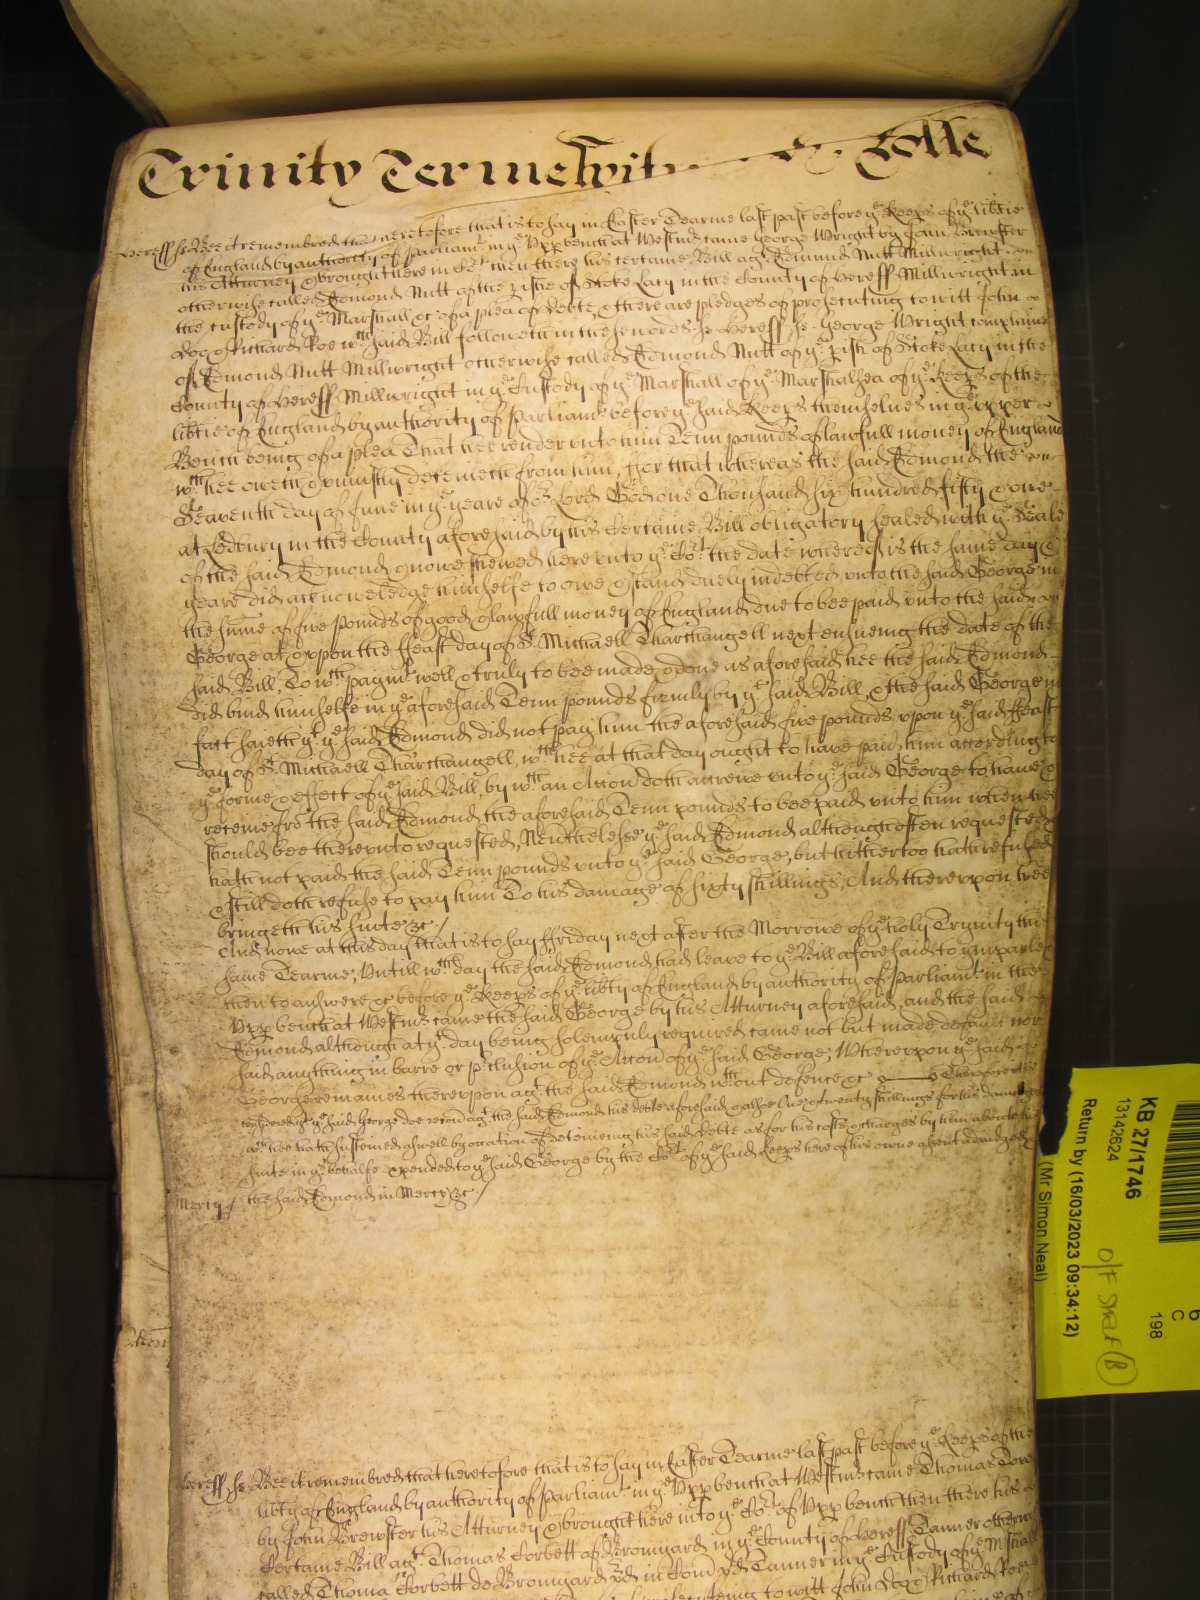 Trinity Terme Witn Rolle
Hereff ss Bee it remembred that heretofore that is to say in Easter Tearme last past before ye Keeps of ye libtie
of England by authority of Parliamt in ye Upp bench at Westmr came George Wright by John Brewster
his Attorney & brought here in Cot then there his certaine Bill agt Edmund Nutt Millwright
otherwise called Edmond Nutt of the Pish of Stoke Lacy in the County of Hereff Millwright in
the custody of ye Marshall &c of a plea of debte, & there are pledges of prosecuting to witt John
Doo & Richard Roe wch said Bill followeth in these words ss Hereff ss George Wright complaines
of Edmond Nutt Millwright otherwise called Edmond Nutt of ye Pish of Stoke Lacy in the
County of Hereff Millwright in ye Custody of ye Marshall of ye Marshalsea of ye Keeps of the
libtie of England by authority of Parliamt before ye said Keeps themselves in ye upper
Bench being of a plea That hee render unto him Tenn pounds of lawfull money of England
wch hee oweth & uniustly deteineth from him, For that whereas the said Edmond the
Seaventh day of June in ye yeare of or Lord God one Thousand six hundred fifty & one
at Ledbury in the County aforesaid by his Certaine Bill obligatory sealed with ye Seale
of the said Edmond & nowe shewed here unto ye Cot the date whereof is the same day &
yeare did acknowledge himselfe to owe & stand duely indebted unto the said George in
the sume of five pounds of good & lawfull money of England due to bee paid unto the said
George at & upon the ffeast day of St Michaell Tharchangell next ensueing the date of the
said Bill, To wch paymt well & truly to bee made & done as aforesaid hee the said Edmond
did bind himselfe in ye aforesaid Tenn pounds firmly by ye said Bill, & the said George in
fact saieth yt ye said Edmond did not pay him the aforesaid five pounds upon ye said ffeast
day of St Michaell Tharchangell, wch hee at that day ought to have paid him according to
ye forme & effect of ye said Bill, by wch an Accon doth accrewe unto ye said George to have &
receive fro the said Edmond the aforesaid Tenn pounds to bee paid unto him when hee
should bee thereunto requested, Neverthelesse ye said Edmond although often requested
hath not paid the said Tenn pounds unto ye said George, but hithertoo hath refused
& still doth refuse to pay him To his damage of sixty shillings, And thereupon hee
bringeth his suite &c /
And nowe at this day that is to say ffriday next after the Morrowe of ye holy Trynity this
same Tearme, Untill wch day the said Edmond had leave to ye Bill aforesaid to imparle
then to answere &c before ye Keeps of ye libty of England by authority of Parliamt in the
Upp bench at Westmr came the said George by his Atturney aforesaid, and the said
Edmond although at yt day being solempnly required came not but made default nor
said anything in barre or pclusion of ye Accon of ye said George; Whereupon ye said
George remaines thereupon agt the said Edmond wthout defence &c Therefore it is
considered yt ye said George doe recou agt the said Edmond his debte aforesaid & alsoe one & twenty shillings for his damages
wch hee hath susteined aswell by occation of deteineing his said debte as for his costs & charges by him about his
suite in yt behalfe expended to ye said George by the Cot of ye said Keeps here of his owne assent adiudged
Mercy / the said Edmond in Mercy &c /
Hereff ss Bee it remembred that heretofore that is to say in Easter Tearme last past before ye Keeps of the
libty of England by authority of Parliamt in ye Upp bench at Westmr came Thomas
by John Brewster his Atturney & brought here into ye Cot of Upp bench then there his
Certaine Bill agt Thomas Corbett of Bromyard in ye County of Hereff Tanner otherwise
called Thoma Corbett de Bromyard in Com Tanner in ye Custody of ye Mshall
to witt John Doo & Richard Roe
KB 27/1746
13142624
Return by (16/03/2023 09:34:12)
(Mr Simon Neal)
6
C
198